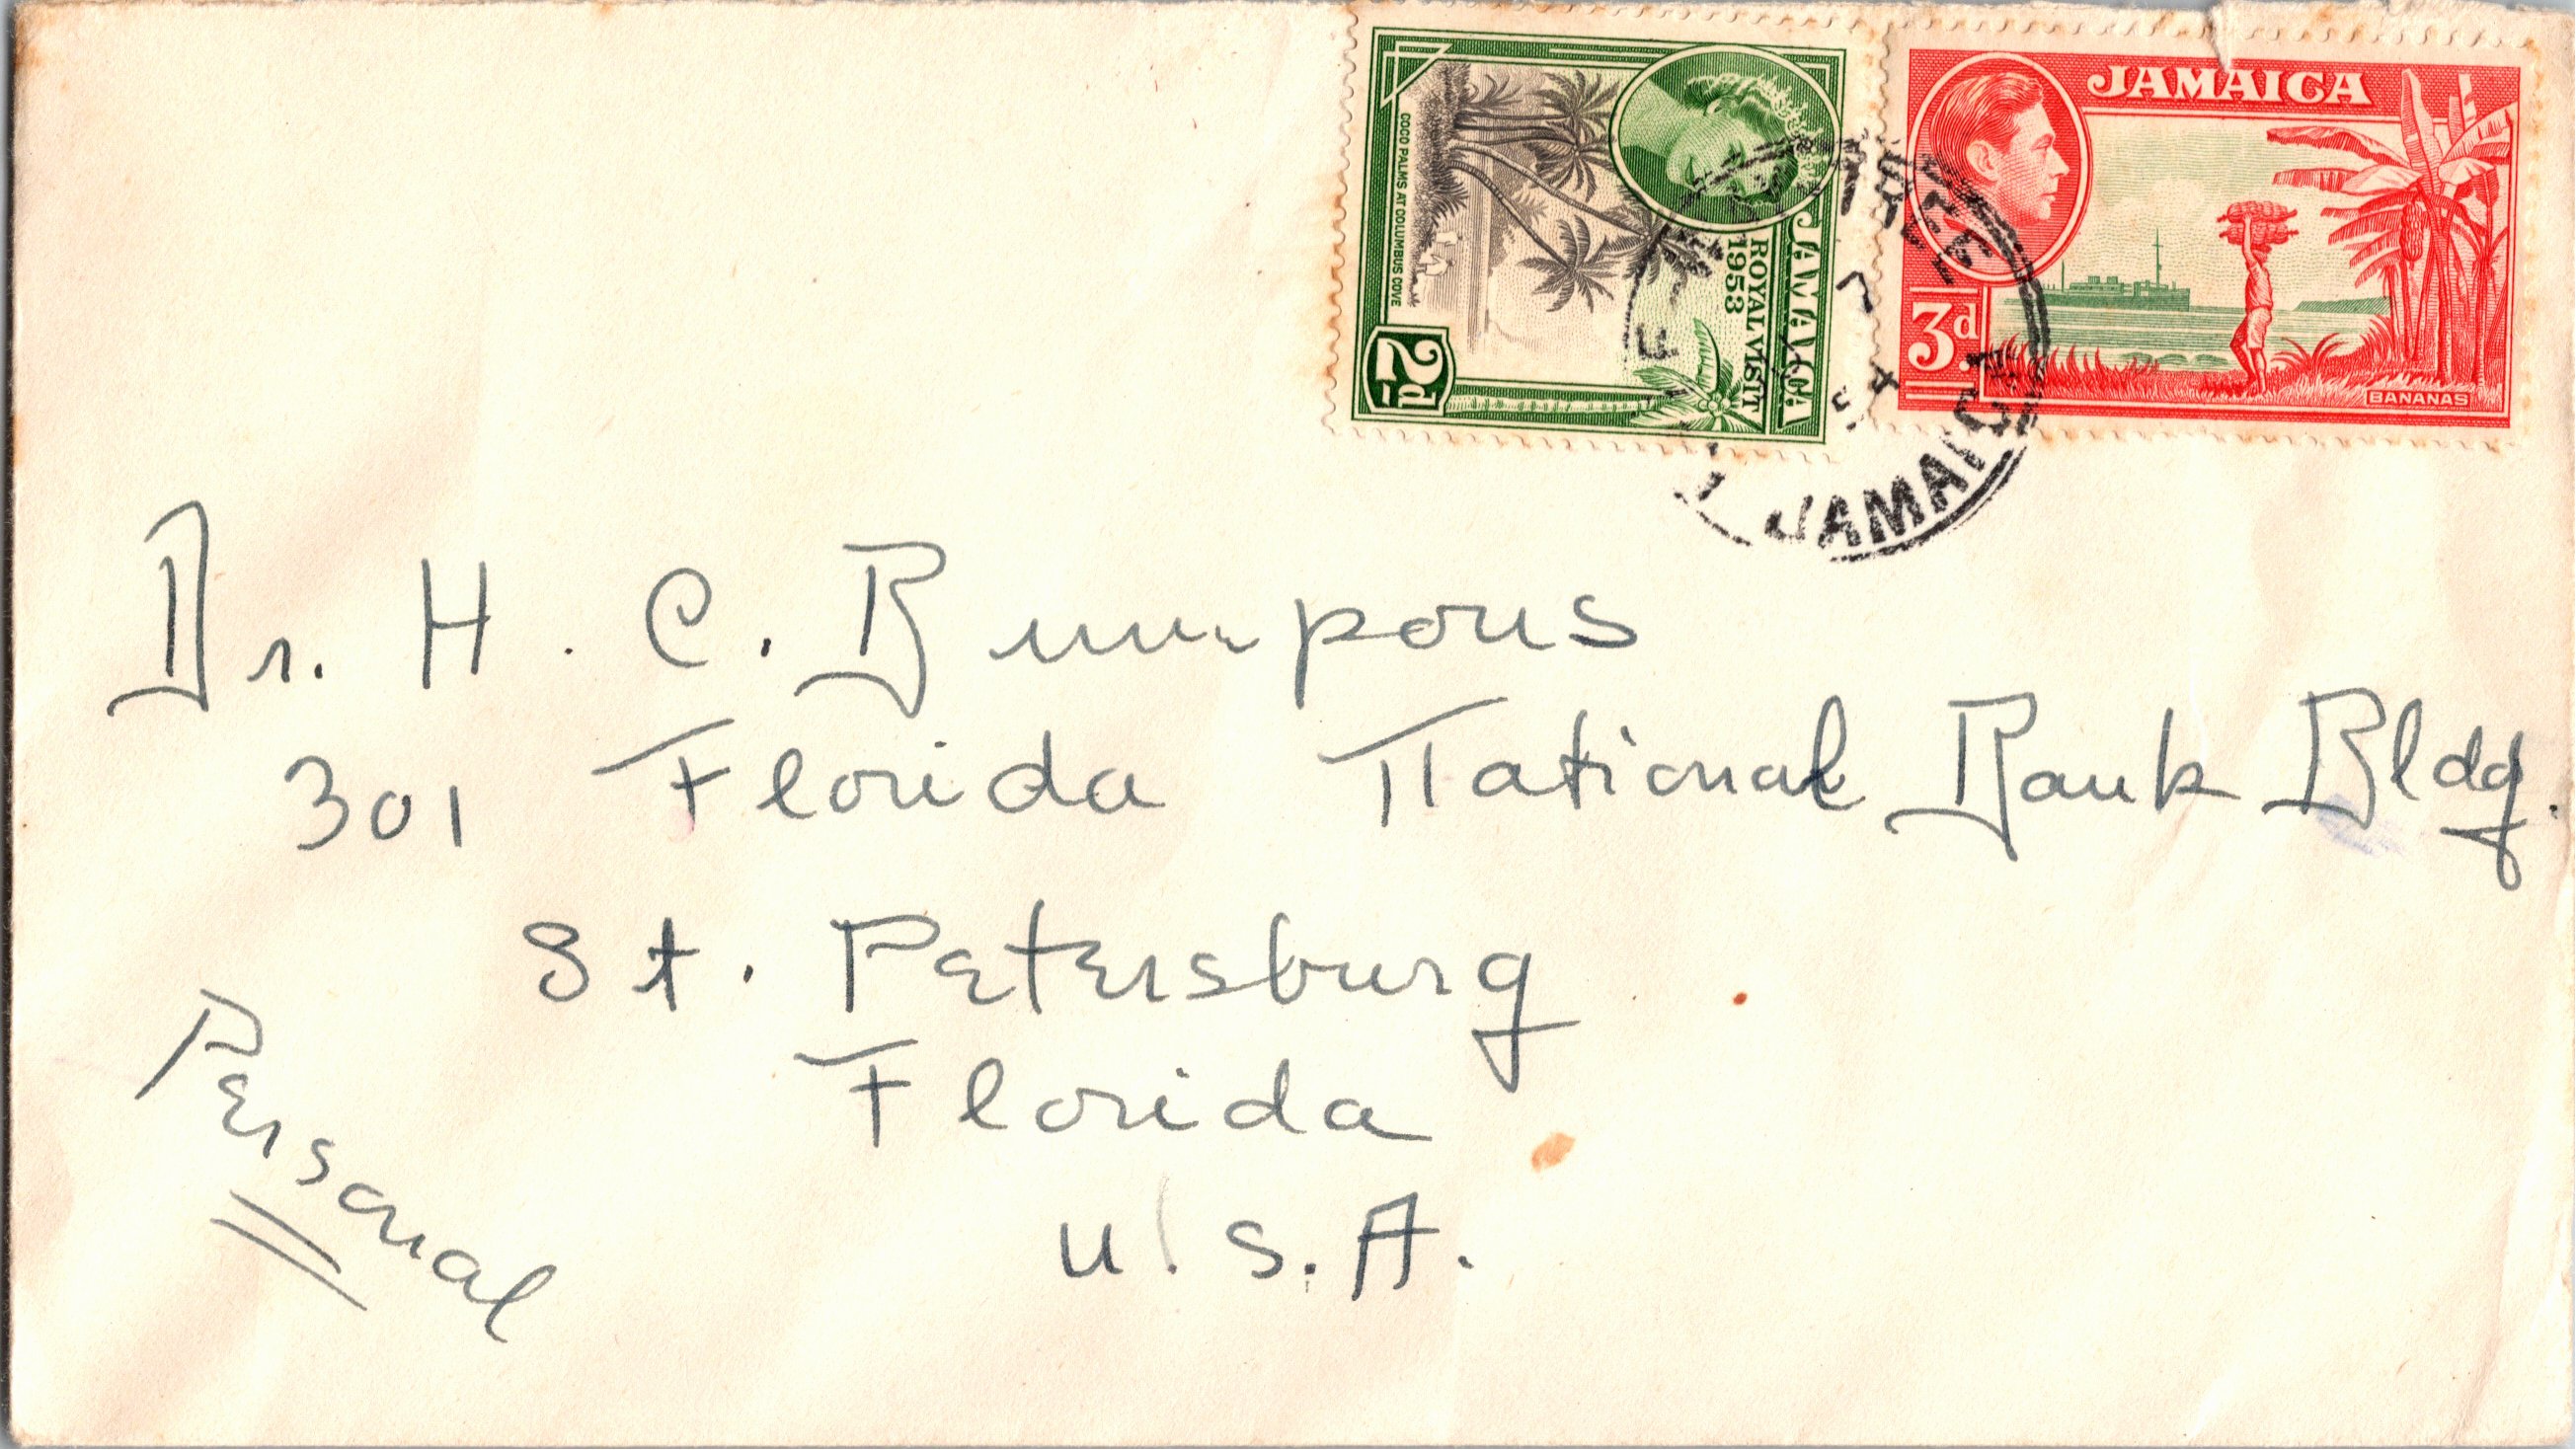 COCO PALMS AT COLUMBUS COVE
JAMAICA
ROYAL VISIT
1953
2d
JAMAICA
3d
BANANAS
JAMAICA
Dr. H. C. Bumpous
301 Florida National Bank Bldg.
St. Petersburg
Florida
U.S.A.
Personal